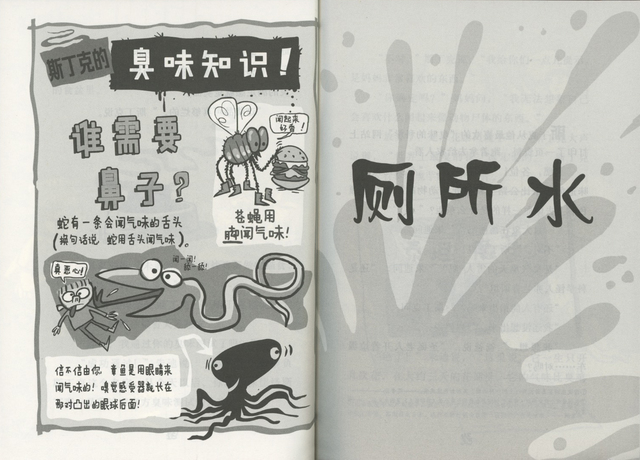 斯丁克的
臭味知识!
谁需要
鼻子?
蛇有一条会闻气味的舌头
(换句话说 蛇用舌头闻气味)。
闻起来
好香!
苍蝇用
脚闻气味!
真恶心!
闻一闻!
舔一舔!
信不信由你 章鱼是用眼睛来
闻气味的! 嗅觉感受器就长在
那对凸出的眼球后面!
厕所水